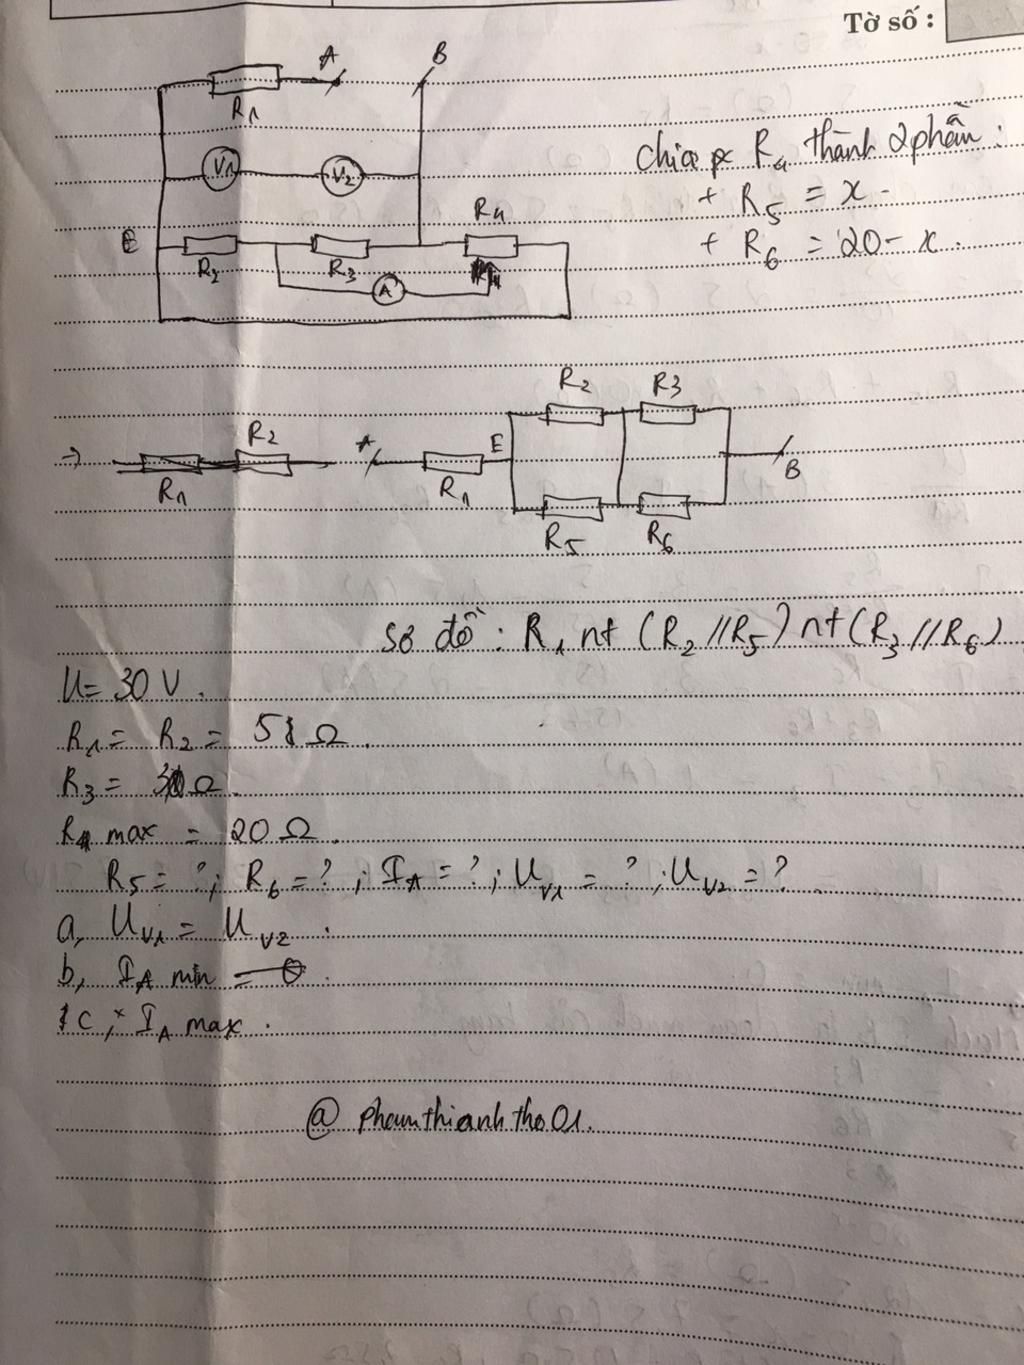 Tờ số :
A
B
R1
V1
V2
E
R2
R3
R4
A
chia R4 thành 2 phần :
+ R5 = x
+ R6 = 20 - x.
=>
R1
R2
A
R1
E
R2
R3
R5
R6
B
sơ đồ : R1 nt (R2 // R5) nt (R3 // R6)
U = 30 V.
R1 = R2 = 5 Ω.
R3 = Ω.
R4 max = 20 Ω.
R5 = ?; R6 = ?; IA = ?; UV1 = ?; UV2 = ?
a, UV1 = UV2.
b, IA min
c, IA max.
@ phamthianhtho01.